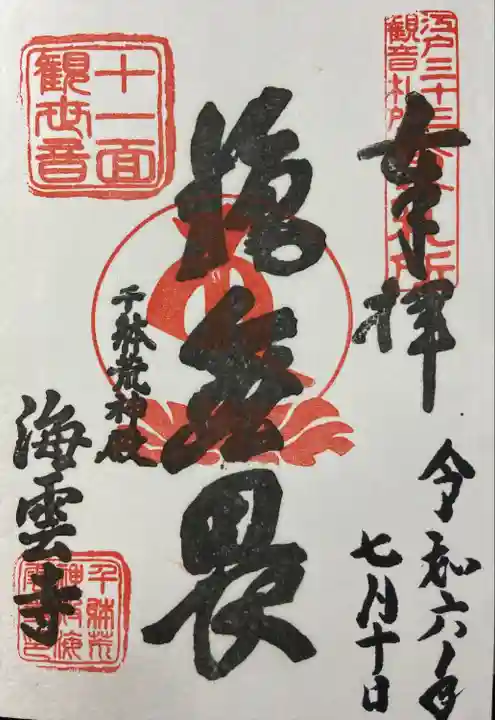 江戸三十三
観音札所
奉拝
令和六年
七月十日
施無畏
十一面
観世音
千躰荒神殿
海雲寺
千躰荒
神殿海